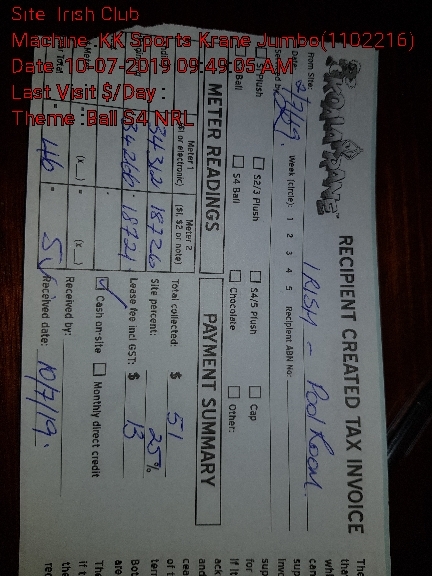 Site Irish Club
Machine: KK Sports Krane Jumbo(1102216)
Date: 10-07-2019 09:49:05 AM
Last Visit $/Day :
Theme :Ball S4 NRL
RECIPIENT CREATED TAX INVOICE
From Site: IRISH - Pool Room.
Week (circle): 1 2 3 4 5 Recipient ABN No:
Plush S2/3 Plush S4/5 Plush Cap
Ball S4 Ball Chocolate Other:
METER READINGS PAYMENT SUMMARY
Meter 1 Meter 2
or electronic) ($1, $2 or note)
34312 18726
34266 18721
46 5
Total collected: $ 51
Site percent: 25%
Lease fee incl GST: $ 13
Cash on-site Monthly direct credit
Received by:
Received date: 10/7/19.